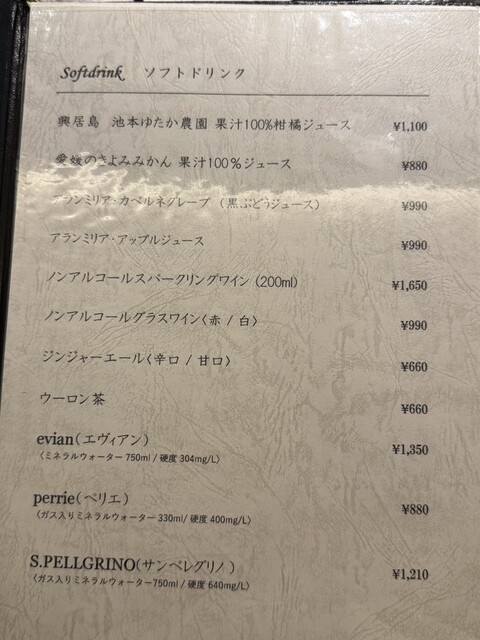 Softdrink ソフトドリンク
興居島 池本ゆたか農園 果汁100%柑橘ジュース ¥1,100
愛媛のきよみみかん 果汁100%ジュース ¥880
アランミリア・カベルネグレープ（黒ぶどうジュース） ¥990
アランミリア・アップルジュース ¥990
ノンアルコールスパークリングワイン (200ml) ¥1,650
ノンアルコールグラスワイン〈赤 / 白〉 ¥990
ジンジャーエール〈辛口 / 甘口〉 ¥660
ウーロン茶 ¥660
evian（エヴィアン） ¥1,350
（ミネラルウォーター 750ml / 硬度 304mg/L）
perrie（ペリエ） ¥880
（ガス入りミネラルウォーター 330ml/ 硬度 400mg/L）
S.PELLGRINO（サンペレグリノ） ¥1,210
（ガス入りミネラルウォーター750ml / 硬度 640mg/L）